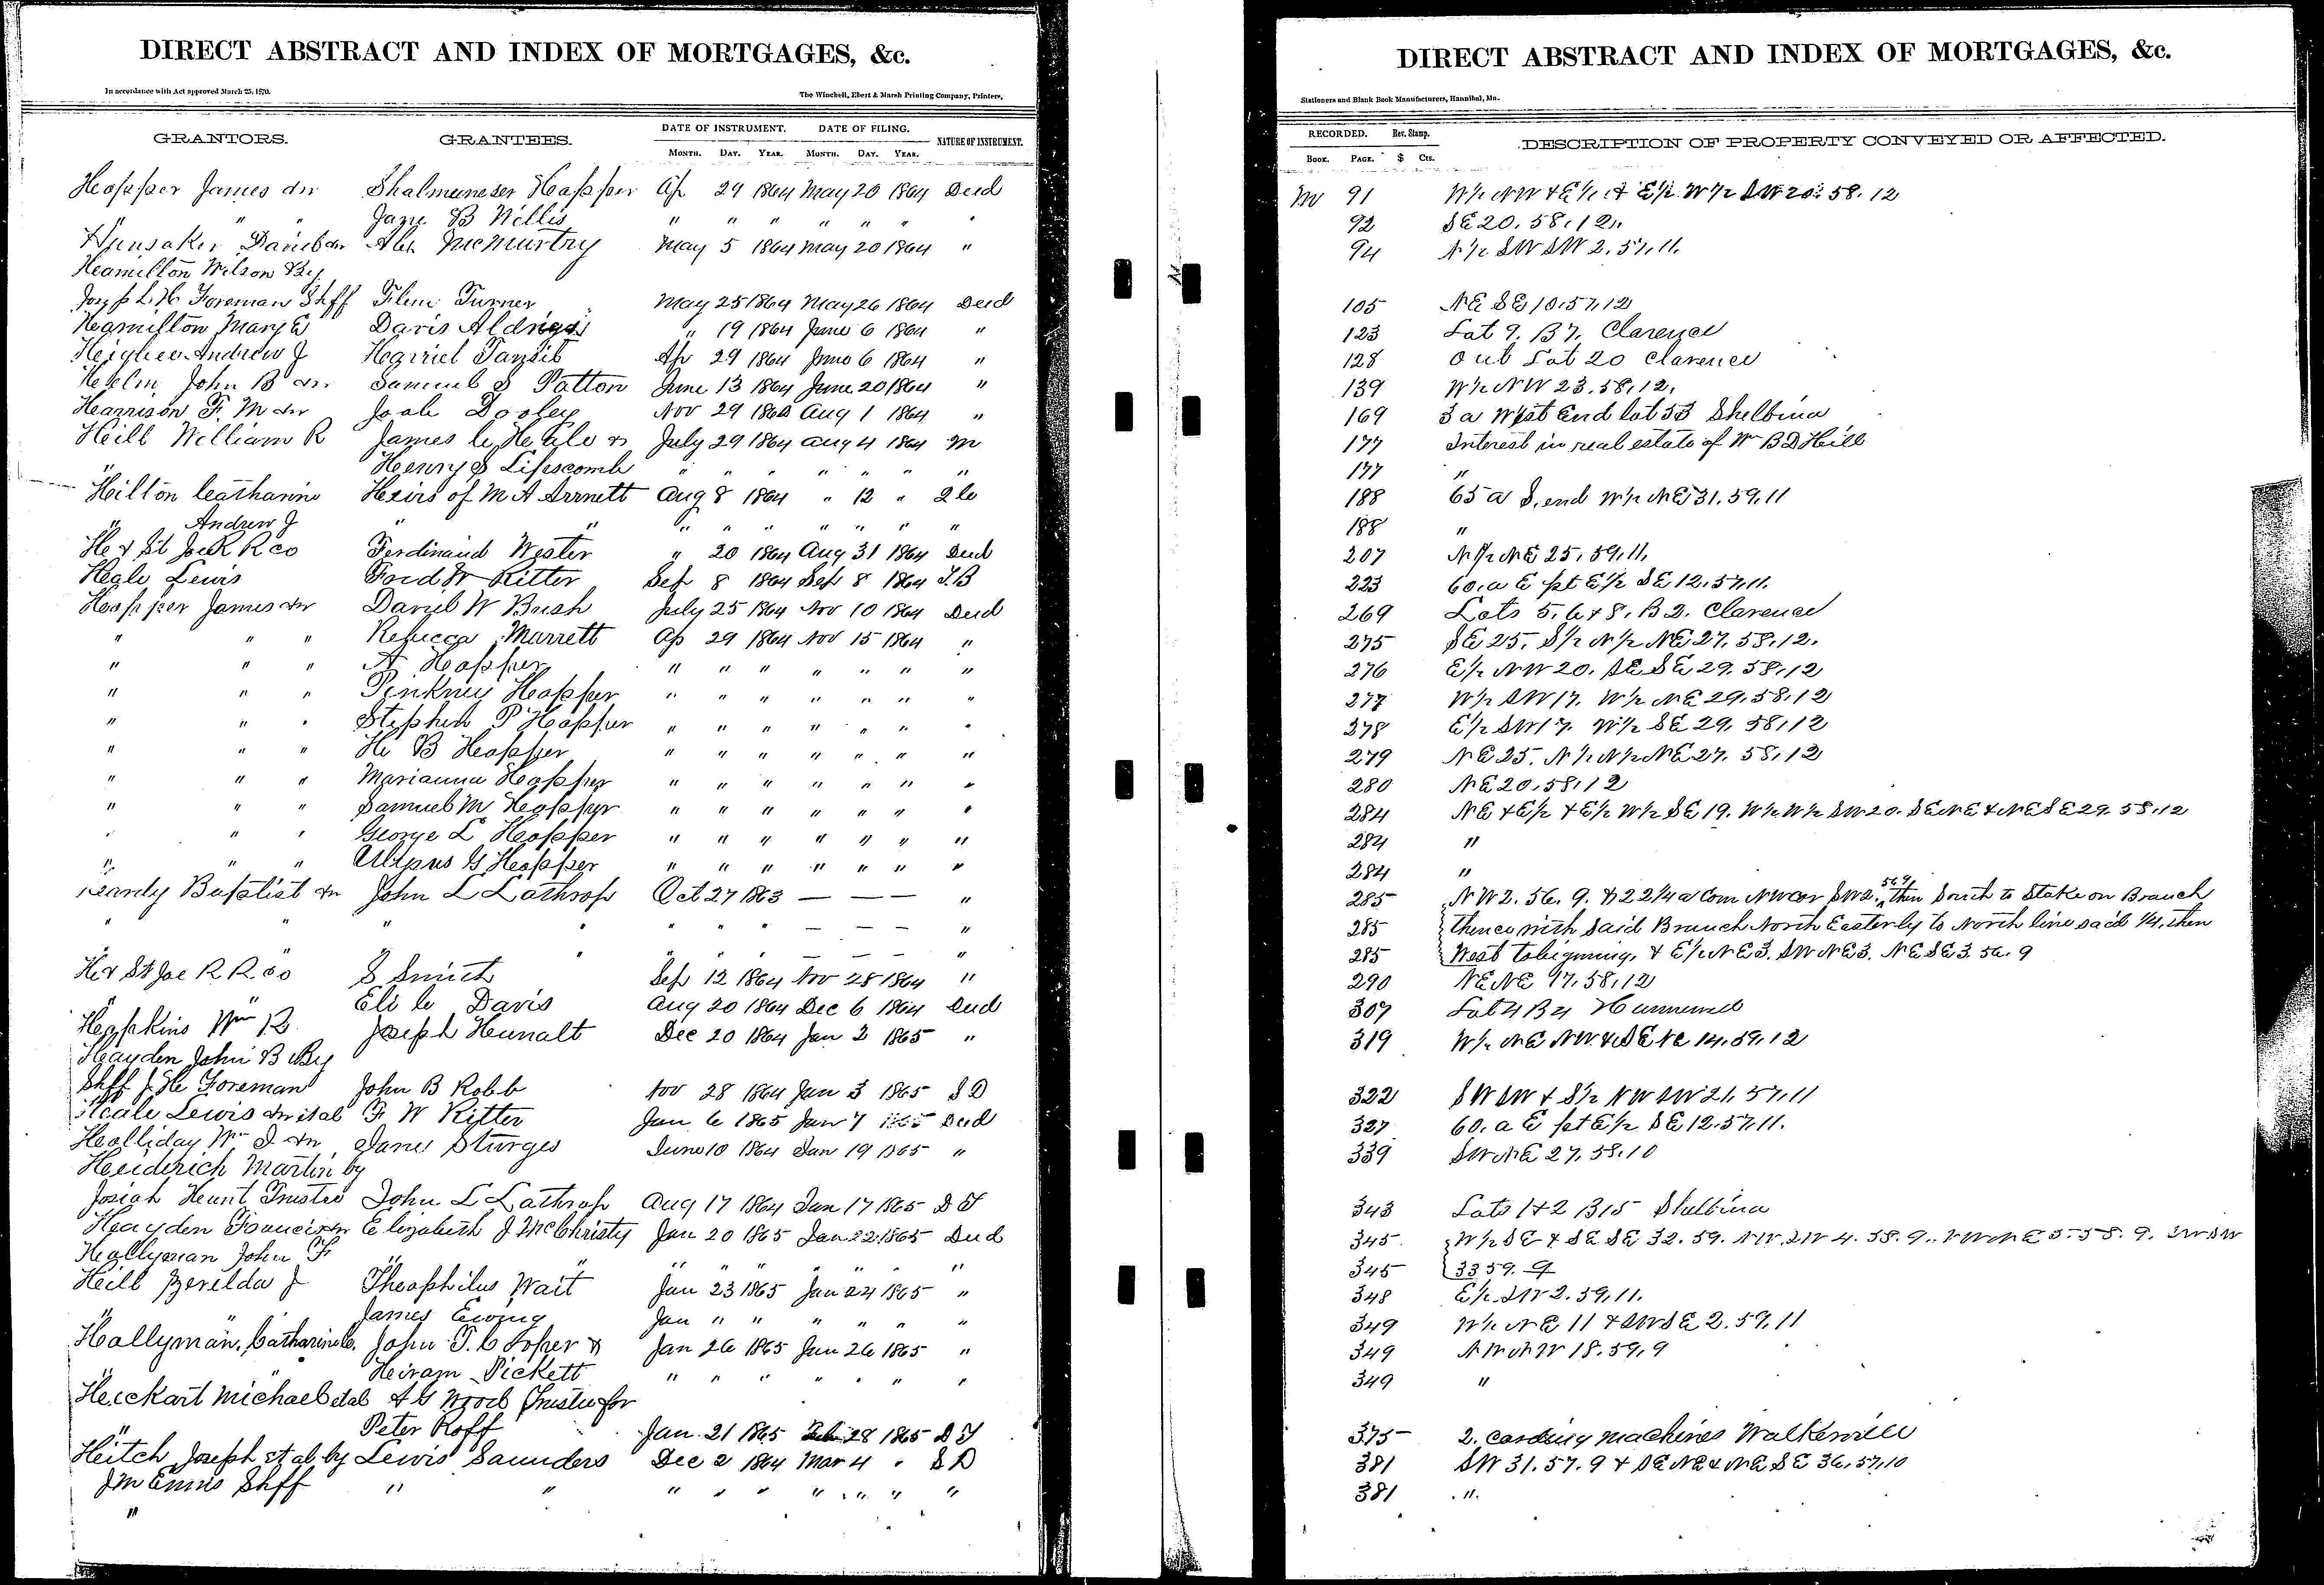 DIRECT ABSTRACT AND INDEX OF MORTGAGES, &c.
In accordance with Act approved March 25, 1870.
The Winchell, Ebert & Marsh Printing Company, Printers,
GRANTORS. GRANTEES. DATE OF INSTRUMENT. DATE OF FILING. NATURE OF INSTRUMENT.
MONTH. DAY. YEAR. MONTH. DAY. YEAR.
Hopper James &w Shalmeneser Hopper Ap 29 1864 May 20 1864 Deed
" " Jane B Willis " " " " " " "
Hunsaker Daniel &w Alex McMurtry May 5 1864 May 20 1864 "
Hamilton Wilson By
Joseph H Foreman Shff Turner May 25 1864 May 26 1864 Deed
Hamilton Mary E Davis " 19 1864 June 6 1864 "
Andrew J Ap 29 1864 June 6 1864 "
John B &w Samuel S Patton June 13 1864 June 20 1864 "
Harrison F. M &w Dooley Nov 29 Aug 1 1864 "
Hill William R James C Hale & July 29 1864 Aug 4 1864 M
" Henry S Lipscomb " " " " " " "
Hilton Catharine Heirs of M A Arnett Aug 8 1864 " 12 " 2 C
" Andrew J " " " " " " " " "
H & St Joe R R co Ferdinand Wester " 20 1864 Aug 31 1864 Deed
Hale Lewis Ford W Ritter Sep 8 1864 Sep 8 1864 T.B
Hopper James &w Daniel W Bush July 25 1864 Nov 10 1864 Deed
" " " Rebecca Marrett Ap 29 1864 Nov 15 1864 "
" " " A Hopper " " " " " " "
" " " Pinkney Hopper " " " " " " "
" " " Stephen P Hopper " " " " " " "
" " " H B Hopper " " " " " " "
" " " Marianna Hopper " " " " " " "
" " " Samuel M Hopper " " " " " " "
" " " George L Hopper " " " " " " "
" " " G Hopper " " " " " " "
Hardy Baptist &w John L Lathrop Oct 27 1863 — — — "
" " " " " " " — — — "
" " " " — — "
H & St Joe R R co S Smith Sep 12 1864 Nov 28 1864 "
" " Eli C Davis Aug 20 1864 Dec 6 1864 Deed
Hopkins Wm R Joseph Hunalt Dec 20 1864 Jan 2 1865 "
Hayden John B By
Shff J H Foreman John B Robb Nov 28 1864 Jan 3 1865 S D
Hale Lewis &w et al F W Ritter Jan 6 1865 Jan 7 1865 Deed
Halliday Wm J &w Jane Sturges June 10 1864 Jan 19 1865 "
Henderich Martin by
Josiah Hunt Trustee John L Lathrop Aug 17 1864 Jan 17 1865 D T
Hayden Francis &w Elizabeth J McChristy Jan 20 1865 Jan 22 1865 Deed
Hollyman John F " " " " " " " "
Hill Zerilda J Theophilus Wait Jan 23 1865 Jan 24 1865 "
" " James Ewing Jan " " " " " "
Hollyman, Catharine C. John T. Cooper & Jan 26 1865 Jan 26 1865 "
" " Hiram Pickett " " " " " " "
Heckart Michael et al A G Wood Trustee for
Peter Roff Jan 21 1865 Feb 28 1865 D T
Hitch Joseph et al by Lewis Saunders Dec 2 1864 Mar 4 " S D
J M Ennis Shff " " " " " " " " "
"
DIRECT ABSTRACT AND INDEX OF MORTGAGES, &c.
Stationers and Blank Book Manufacturers, Hannibal, Mo.
RECORDED. Rev. Stamp. DESCRIPTION OF PROPERTY CONVEYED OR AFFECTED.
BOOK. PAGE. $ Cts.
M 91 W½ NW & E½ & E½ W½ SW 20. 58. 12
92 SE 20. 58. 12.
94 N½ SW SW 2. 57. 11.
105 NE SE 10. 57. 12
123 Lot 9. B 7. Clarence
128 Out Lot 20 Clarence
139 W½ NW 23. 58. 12.
169 3 a West End lot 33 Shelbina
177 Interest in real estate of Wm B D Hill
177 "
188 65 a S. end W½ NE 31. 59. 11
188 "
207 N½ NE 25. 59. 11.
223 60. a E pt E½ SE 12. 57. 11.
269 Lots 5. 6 & 8. B 2. Clarence
275 SE 25. S½ N½ NE 27. 58. 12.
276 E½ NW 20. SE SE 29. 58. 12
277 W½ SW 17. W½ NE 29. 58. 12
278 E½ SW 17. W½ SE 29. 58. 12
279 NE 25. N½ N½ NE 27. 58. 12
280 NE 20. 58. 12
284 NE & E½ & E½ W½ SE 19. W½ W½ SW 20. SE NE & NE SE 29. 58. 12
284 "
284 "
285 NW 2. 56. 9. & 22¼ a Com NW cor SW 2. 56 9 then South to Stake on Branch
285 thence with said Branch North Easterly to North line said ¼, then
285 West to begining. & E½ NE 3. SW NE 3. NE SE 3. 56. 9
290 NE NE 17. 58. 12
307 Lot 4 B 4 Hunnewell
319 W½ NE NW & SE NE 14. 59. 12
322 SW SW & S½ NW SW 21. 57. 11
327 60. a E pt E½ SE 12. 57. 11.
339 SW NE 27. 58. 10
343 Lots 1 & 2 B 15 Shelbina
345 W½ SE & SE SE 32. 59. NW. NW 4. 58. 9. NW NE 5. 58. 9. SW SW
345 33 59. 9
348 E½ SW 2. 59. 11.
349 W½ NE 11 & SW SE 2. 59. 11
349 NW NW 18. 59. 9
349 "
375 2. carding machines Walkersville
381 SW 31. 57. 9 & SE NE & NE SE 36. 57. 10
381 "